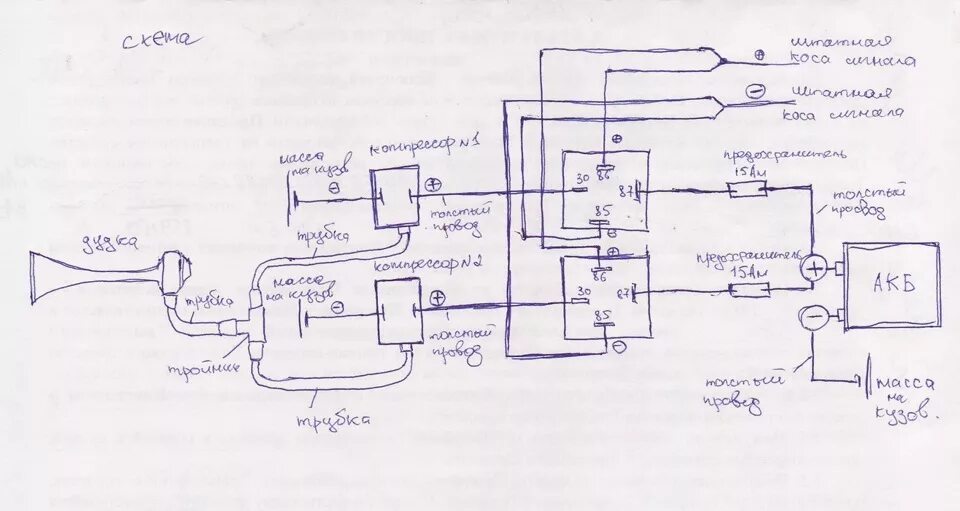 схема
+
штатная
коса сигнала
−
штатная
коса сигнала
масса
на кузов
−
компрессор N1
+
толстый
провод
+
86
30
87
85
−
предохранитель
15Ам
толстый
провод
трубка
дудка
трубка
тройник
масса
на кузов
−
компрессор N2
+
толстый
провод
+
86
30
87
85
−
предохранитель
15Ам
+
−
АКБ
толстый
провод
масса
на
кузов.
трубка